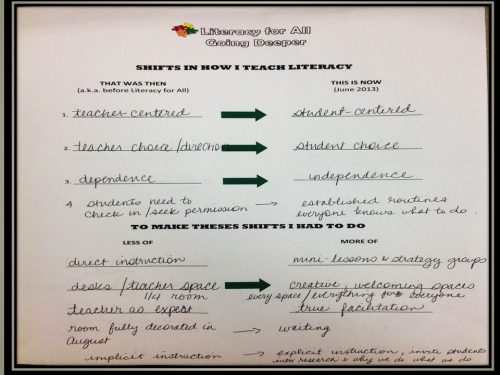 Literacy for All
Going Deeper
SHIFTS IN HOW I TEACH LITERACY
THAT WAS THEN THIS IS NOW
(a.k.a. before Literacy for All) (June 2013)
1. teacher-centered student-centered
2. teacher choice/direction student choice
3. dependence independence
4 students need to established routines
check in/seek permission everyone knows what to do.
TO MAKE THESES SHIFTS I HAD TO DO
LESS OF MORE OF
direct instruction mini-lessons & strategy groups
desks/teacher space creative, welcoming spaces
1/4 room every space/everything for everyone
teacher as expert true facilitation
room fully decorated in waiting
August
implicit instruction explicit instruction, invite students
into research & why we do what we do